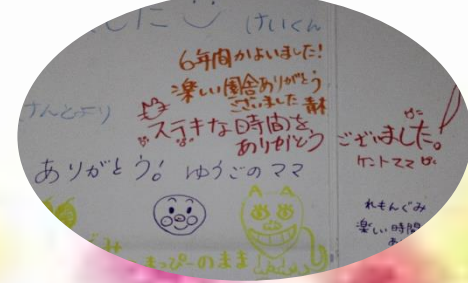 した
けいくん
6年間かよいました!
楽しい園舎ありがとう
ございました
けんとより
ステキな時間を
ありがとう ございました。
ケントママ
ありがとう! ゆうごのママ
れもんぐみ
楽しい時間
あ
ぐみ
まっぴーのまま